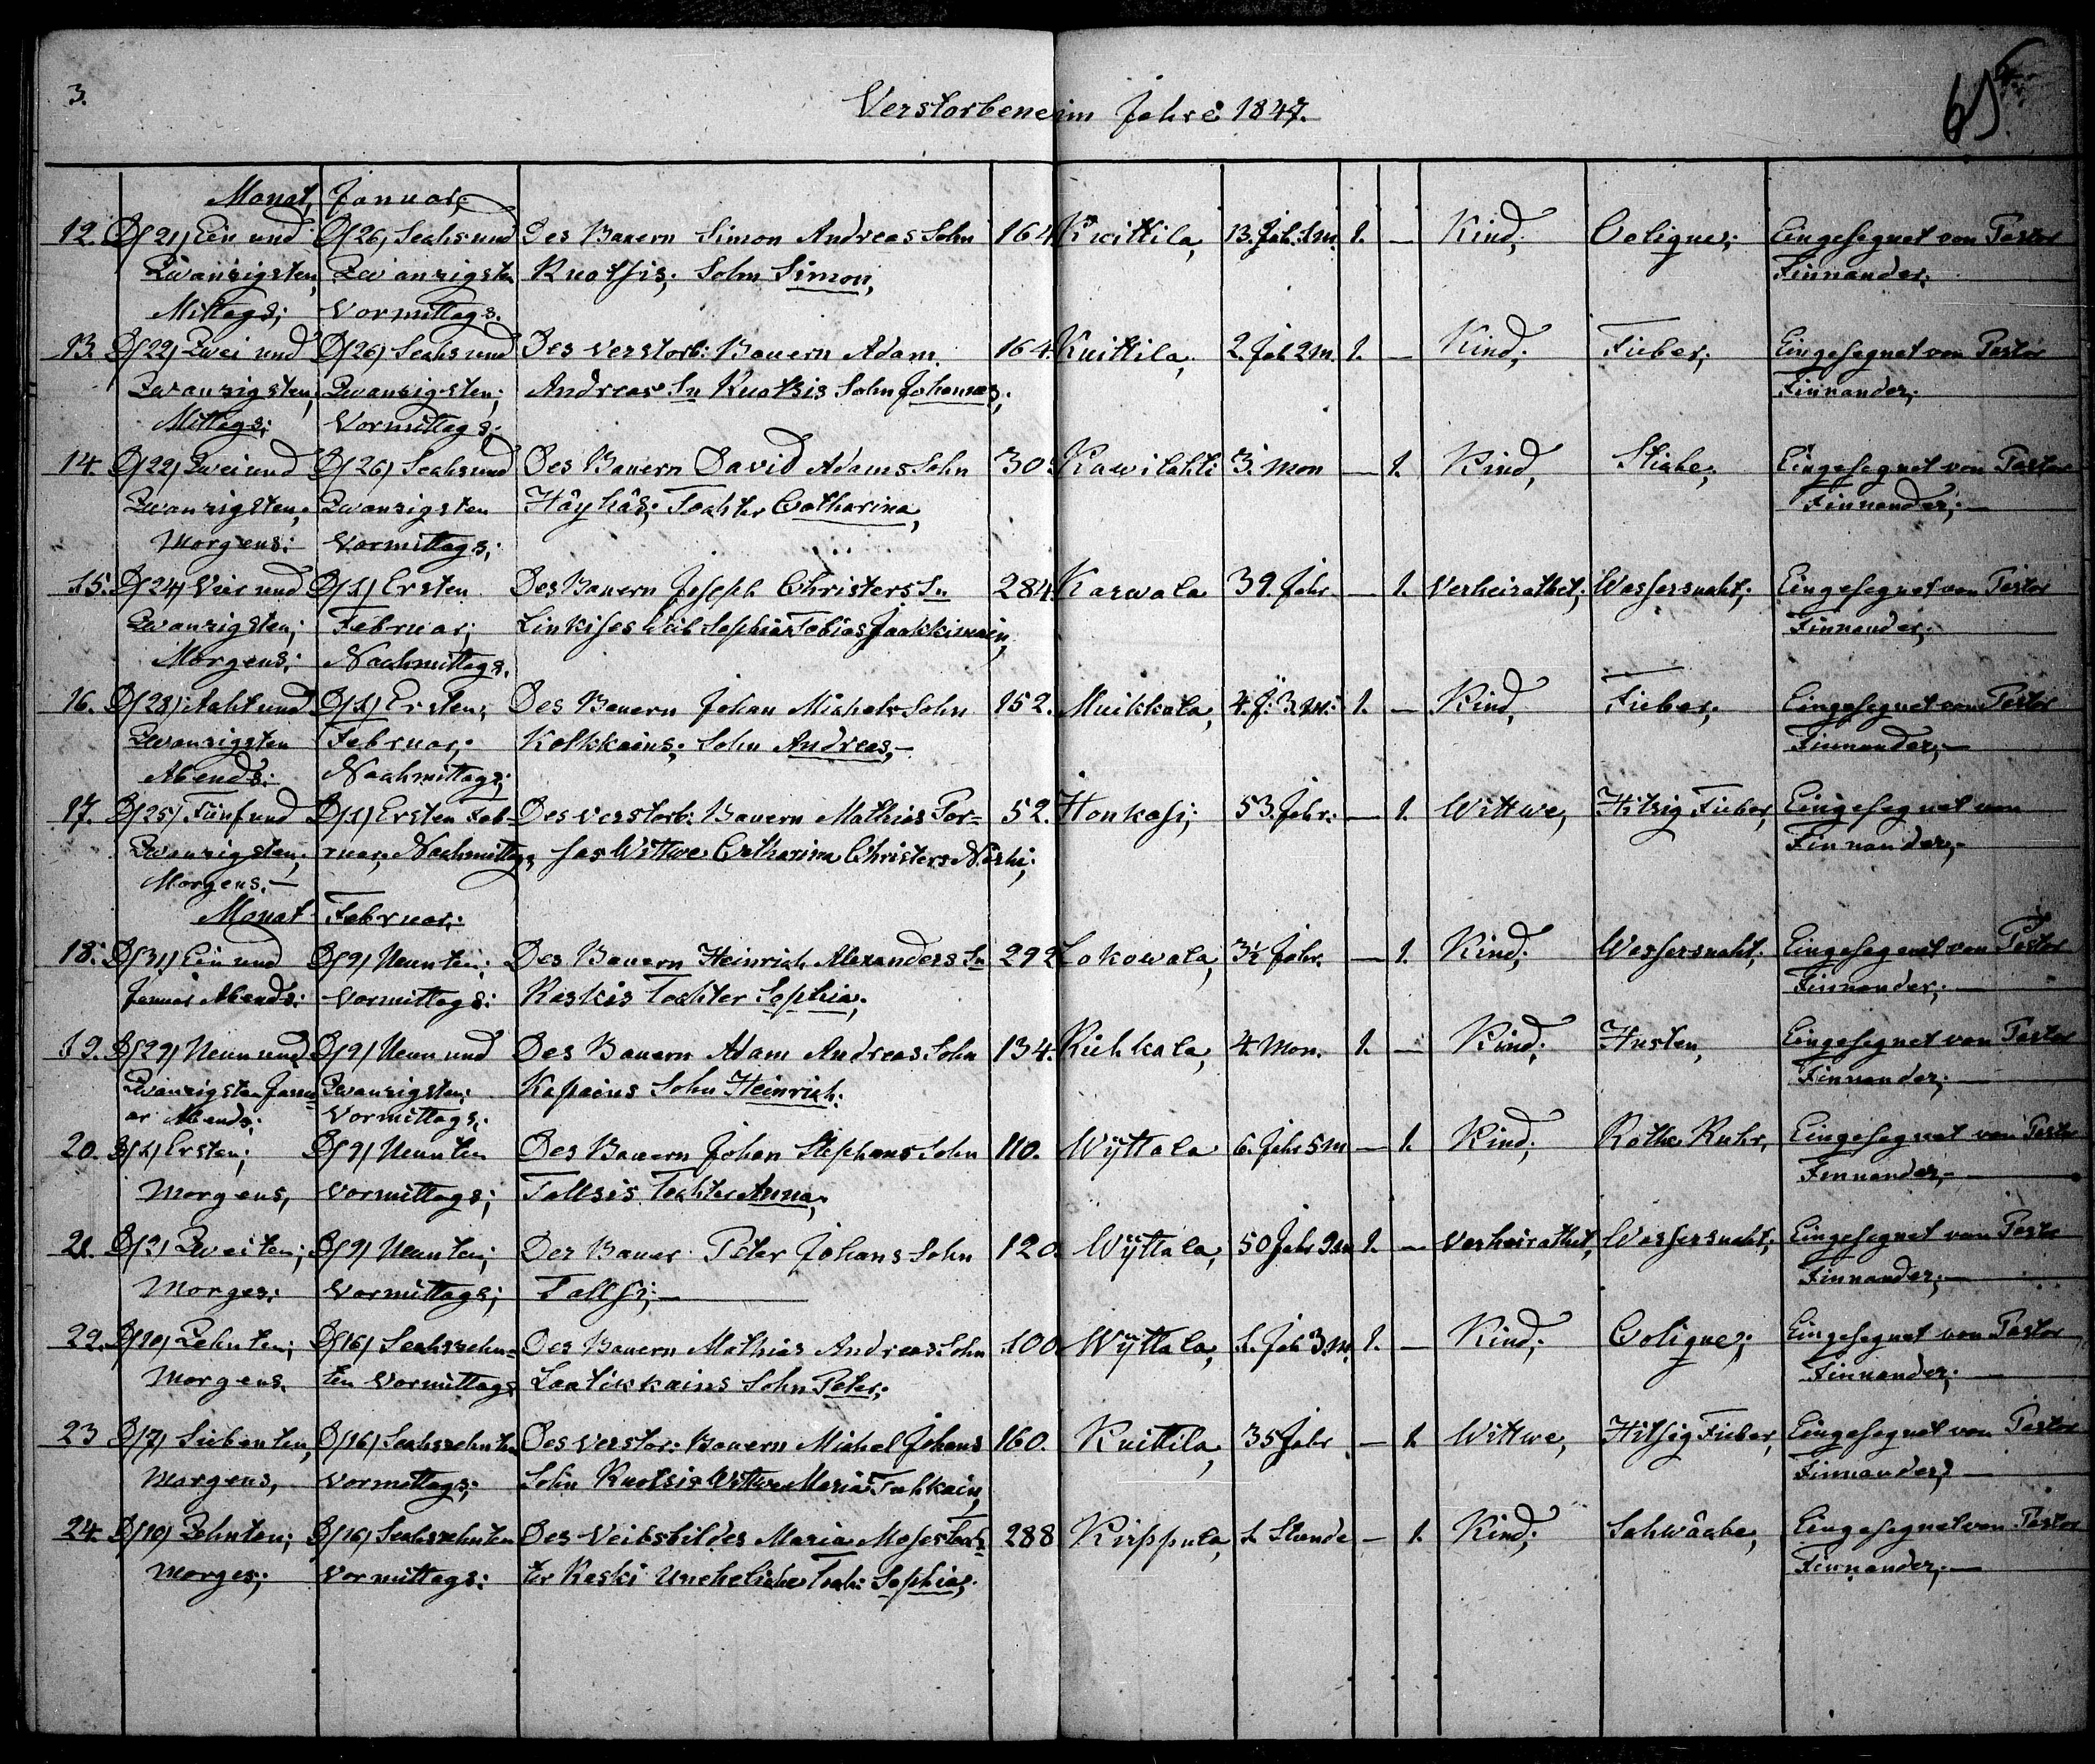 3.
Verstorbene im Jahre 1847.
65
Monat, Januar;
12. D/21/ Ein und D/26/ Sechs und Des Bauern Simon Andreas Sohn 164 Kuittila, 13. Jah. 1 m. 1. — Kind; Colique; Eingesegnet von Pastor
Zwanzigsten, Zwanzigsten Ruotsis; Sohn Simon, Finnander;
Mittags; Vormittags.
13. D/22/ Zwei und D/26/ Sechs und Des verstorb: Bauern Adam 164. Kuittila, 2. Jah 2 m. 1. — Kind; Fieber; Eingesegnet von Pastor
Zwanzigsten, Zwanzigsten; Andreas Sn Ruotsis Sohn Johannes; Finnander;
Mittags; Vormittags;
14. D/22/ Zwei und D/26/ Sechs und Des Bauern David Adams Sohn 30. Kawilahti 3. Mon — 1. Kind, Stiche, Eingesegnet von Pastor
Zwanzigsten; Zwanzigsten Häyhäs; Tochter Catharina, Finnander; —
Morgens; Vormittags;
15. D/24/ Vier und D/1/ Ersten Des Bauern Joseph Christers Sn 284. Karwala 39. Jahr — 1. Verheirathet; Wassersucht; Eingesegnet von Pastor
Zwanzigsten; Februar; Linkises Weib Sophia Tobias Jaakkimain, Finnander;
Morgens; Nachmittags.
16. D/28/ Acht und D/1/ Ersten; Des Bauern Johan Michels Sohn 152. Muikkala, 4. J. 3. m. 1. — Kind, Fieber; Eingesegnet von Pastor
Zwanzigsten Februar; Kolkkains; Sohn Andreas, — Finnander; —
Abends; Nachmittags;
17. D/25/ Fünf und D/1/ Ersten Feb- Des verstorb: Bauern Mathias Por= 52. Honkasi; 53. Jahr. — 1. Wittwe, Hitzig Fieber, Eingesegnet von
Zwanzigsten; ruar; Nachmittags; sas Wittwe Catharina Christers Finnander; —
Morgens. —
Monat Februar;
18. D/31/ Ein und D/9/ Neunten; Des Bauern Heinrich Alexanders Sn 292 Lokowala, 3½ Jahr. — 1. Kind; Wassersucht; Eingesegnet von Pastor
Januar Abends; Vormittags; Raskis Tochter Sophia; Finnander; —
19. D/29/ Neun und D/9/ Neun und Des Bauern Adam Andreas Sohn 134. Kuhkala, 4. Mon. 1. — Kind; Husten, Eingesegnet von Pastor
Zwanzigsten Janu- Zwanzigsten; Kapains Sohn Heinrich; Finnander; —
ar Abends; Vormittags;
20. D/1/ Ersten; D/9/ Neunten Des Bauern Johan Stephans Sohn 110. Wÿttala 6. Jahr 5 m — 1. Kind; Rothe Ruhr, Eingesegnet von Pastor
Morgens, Vormittags; Tallsis Tochter Anna; Finnander; —
21. D/2/ Zweiten; D/9/ Neunten; Der Bauer Peter Johans Sohn 120. Wÿttala, 50 Jahr 9 m 1. — Verheirathet, Wassersucht; Eingesegnet von Pastor
Morges; Vormittags; Tallsi; — Finnander; —
22. D/10/ Zehnten; D/16/ Sechszehn= Des Bauern Mathias Andreas Sohn 100 Wÿttala, 1. Jah 3. m. 1. — Kind; Colique; Eingesegnet von Pastor
Morgens. ten Vormittags Laatikkains Sohn Peter; Finnander; —
23 D/7/ Siebenten, D/16/ Sechszehnten Des verstor: Bauern Michel Johans 160. Kuittila, 35 Jahr — 1. Wittwe, Hitsig Fieber, Eingesegnet von Pastor
Morgens, Vormittags; Sohn Ruotsis Wittwe Maria Tuhkain, Finnander; —
24. D/10/ Zehnten; D/16/ Sechszehnten Des Weibsbildes Maria Moses Toch= 288 Kirppula, 1. Stunde — 1. Kind; Schwäche, Eingesegnet von Pastor
Morges; Vormittags; ter Raski Uneheliche Toch: Sophia; Finnander; —